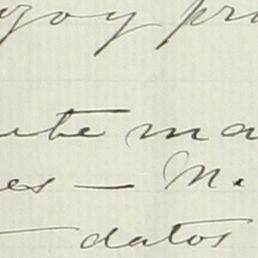 yoy pr
ute ma
es — M.
— datos